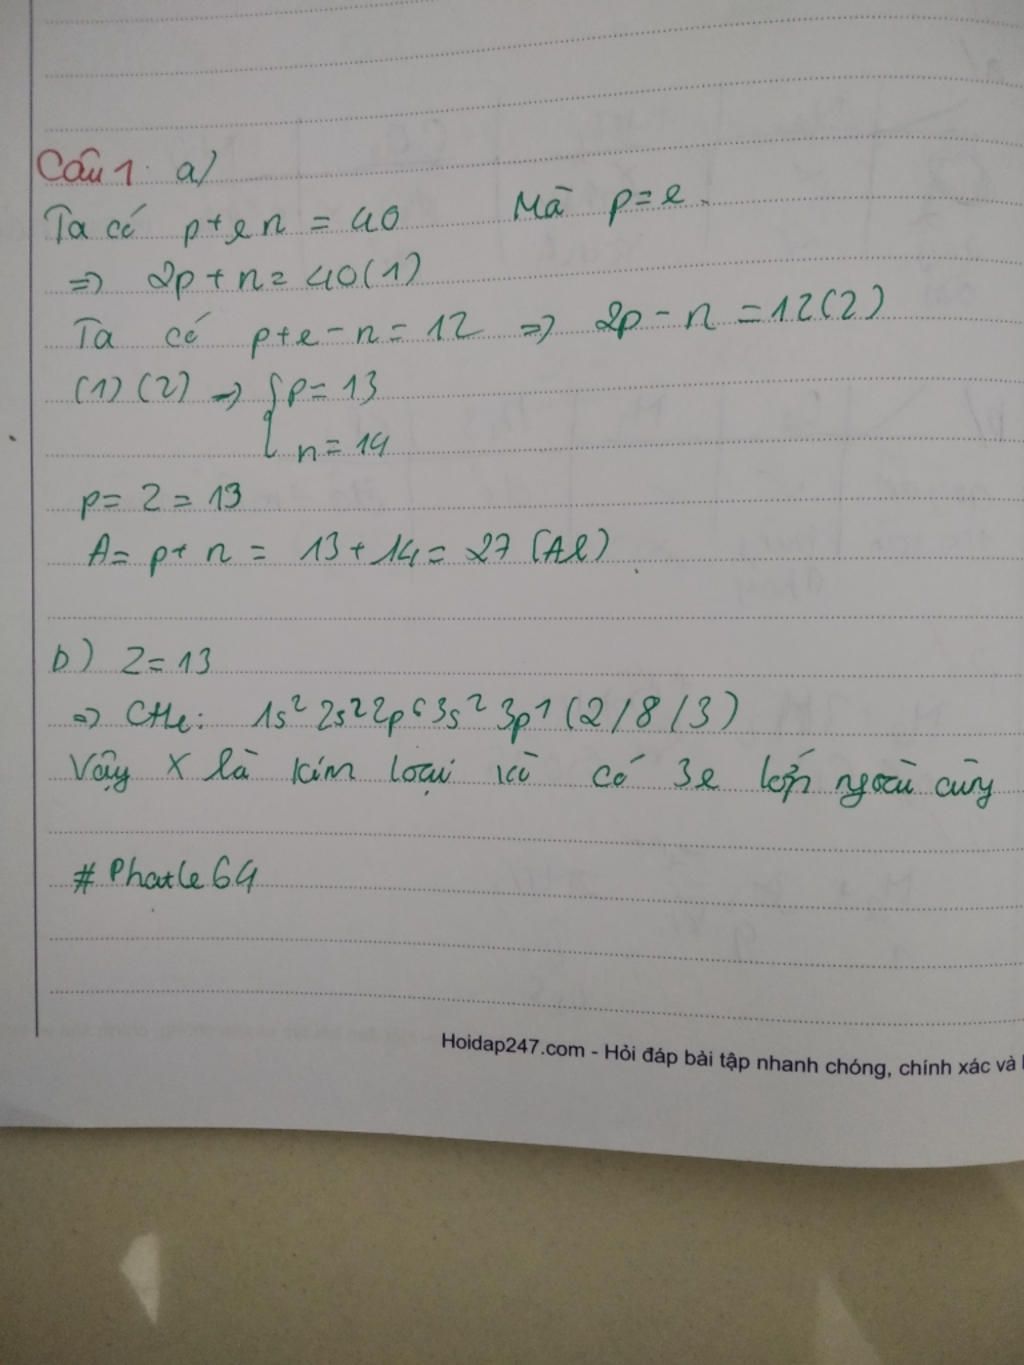 Câu 1: a)
Ta có p+e n = 40 Mà p=e.
=> 2p+n=40(1)
Ta có p+e-n=12 => 2p-n=12(2)
(1)(2) => { p=13
n=14
p=Z=13
A= p+n = 13+14=27 (Al)
b) Z=13
=> CHe: 1s² 2s² 2p⁶ 3s² 3p¹ (2/8/3)
Vậy X là kim loại vì có 3e lớp ngoài cùng
# Phatle64
Hoidap247.com - Hỏi đáp bài tập nhanh chóng, chính xác và